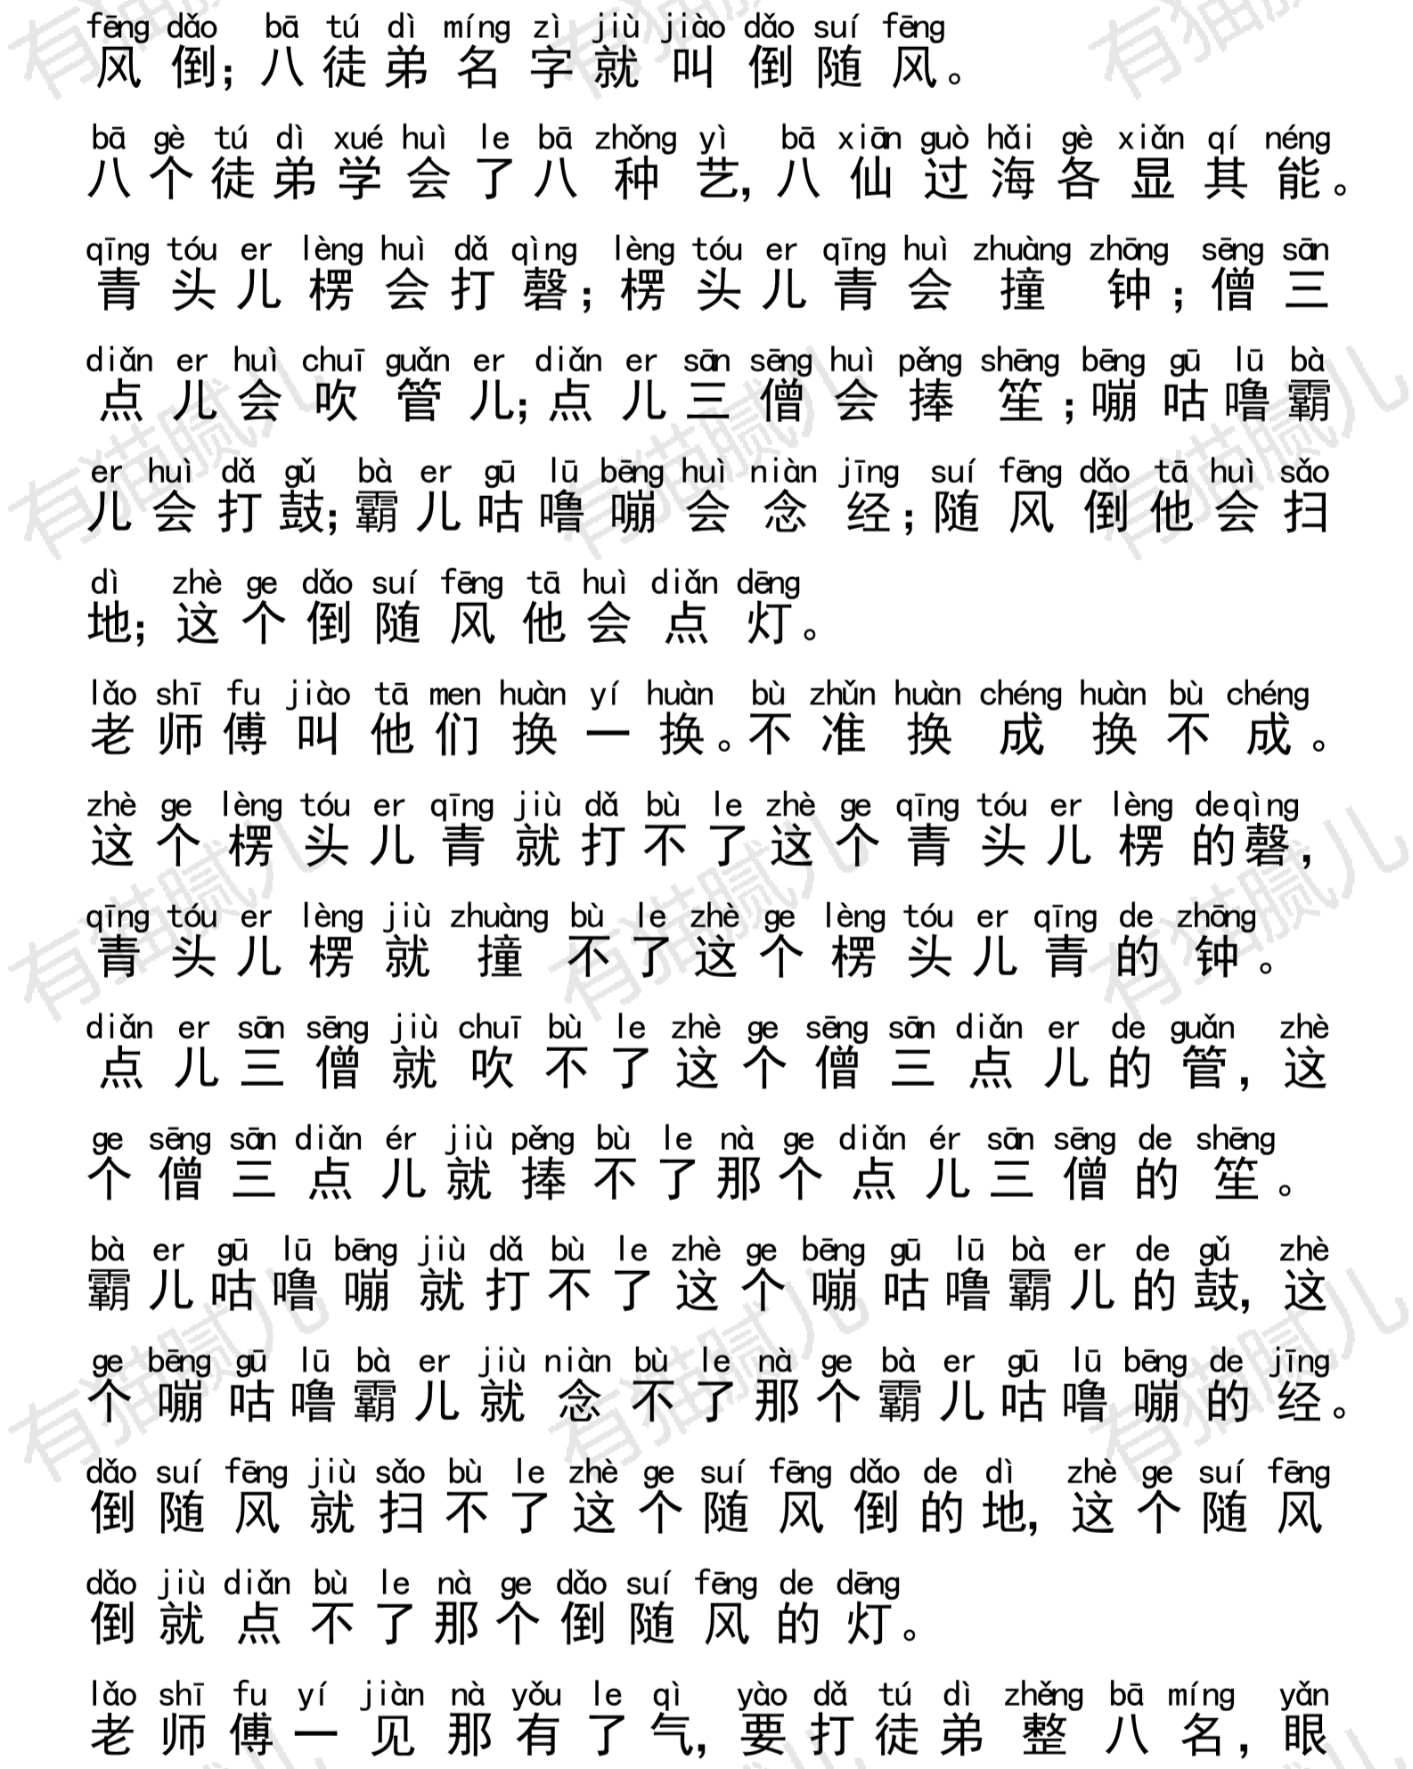 fēng dǎo bā tú dì míng zì jiù jiào dǎo suí fēng
风倒；八徒弟名字就叫倒随风。
bā gè tú dì xué huì le bā zhǒng yì bā xiān guò hǎi gè xiǎn qí néng
八个徒弟学会了八种艺，八仙过海各显其能。
qīng tóu er lèng huì dǎ qìng lèng tóu er qīng huì zhuàng zhōng sēng sān
青头儿楞会打磬；楞头儿青会撞钟；僧三
diǎn er huì chuī guǎn er diǎn er sān sēng huì pěng shēng bēng gū lū bà
点儿会吹管儿；点儿三僧会捧笙；嘣咕噜霸
er huì dǎ gǔ bà er gū lū bēng huì niàn jīng suí fēng dǎo tā huì sǎo
儿会打鼓；霸儿咕噜嘣会念经；随风倒他会扫
dì zhè ge dǎo suí fēng tā huì diǎn dēng
地；这个倒随风他会点灯。
lǎo shī fu jiào tā men huàn yí huàn bù zhǔn huàn chéng huàn bù chéng
老师傅叫他们换一换。不准换成换不成。
zhè ge lèng tóu er qīng jiù dǎ bù le zhè ge qīng tóu er lèng deqìng
这个楞头儿青就打不了这个青头儿楞的磬，
qīng tóu er lèng jiù zhuàng bù le zhè ge lèng tóu er qīng de zhōng
青头儿楞就撞不了这个楞头儿青的钟。
diǎn er sān sēng jiù chuī bù le zhè ge sēng sān diǎn er de guǎn zhè
点儿三僧就吹不了这个僧三点儿的管，这
ge sēng sān diǎn ér jiù pěng bù le nà ge diǎn ér sān sēng de shēng
个僧三点儿就捧不了那个点儿三僧的笙。
bà er gū lū bēng jiù dǎ bù le zhè ge bēng gū lū bà er de gǔ zhè
霸儿咕噜嘣就打不了这个嘣咕噜霸儿的鼓，这
ge bēng gū lū bà er jiù niàn bù le nà ge bà er gū lū bēng de jīng
个嘣咕噜霸儿就念不了那个霸儿咕噜嘣的经。
dǎo suí fēng jiù sǎo bù le zhè ge suí fēng dǎo de dì zhè ge suí fēng
倒随风就扫不了这个随风倒的地，这个随风
dǎo jiù diǎn bù le nà ge dǎo suí fēng de dēng
倒就点不了那个倒随风的灯。
lǎo shī fu yí jiàn nà yǒu le qì yào dǎ tú dì zhěng bā míng yǎn
老师傅一见那有了气，要打徒弟整八名，眼